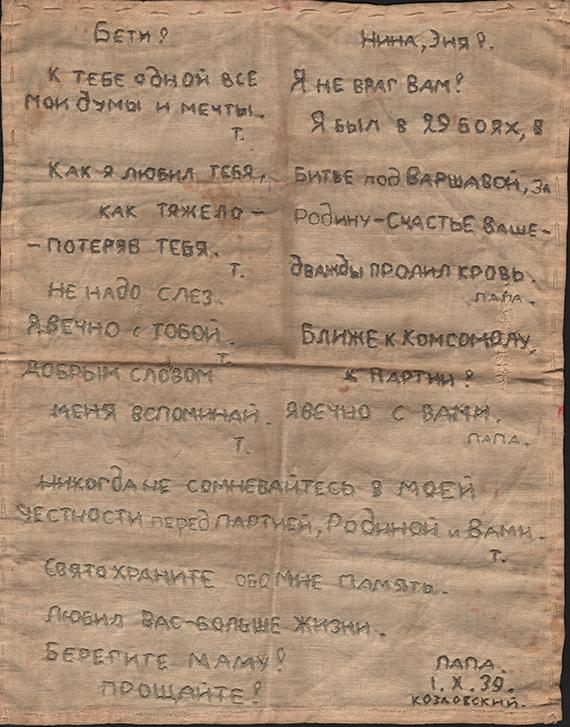 Бети!
К ТЕБЕ ОДНОЙ ВСЕ
МОИ ДУМЫ И МЕЧТЫ.
Т.
КАК Я ЛЮБИЛ ТЕБЯ,
КАК ТЯЖЕЛО –
– ПОТЕРЯВ ТЕБЯ.
Т.
НЕ НАДО СЛЕЗ.
Я ВЕЧНО С ТОБОЙ.
Т.
ДОБРЫМ СЛОВОМ
МЕНЯ ВСПОМИНАЙ.
Т.
НИНА, ЭНЯ!
Я НЕ ВРАГ ВАМ!
Я БЫЛ В 29 БОЯХ, В
БИТВЕ ПОД ВАРШАВОЙ, ЗА
РОДИНУ – СЧАСТЬЕ ВАШЕ –
ДВАЖДЫ ПРОЛИЛ КРОВЬ.
ПАПА.
БЛИЖЕ К КОМСОМОЛУ,
К ПАРТИИ!
Я ВЕЧНО С ВАМИ.
ПАПА.
НИКОГДА НЕ СОМНЕВАЙТЕСЬ В МОЕЙ
ЧЕСТНОСТИ ПЕРЕД ПАРТИЕЙ, РОДИНОЙ И ВАМИ.
Т.
СВЯТО ХРАНИТЕ ОБО МНЕ ПАМЯТЬ.
ЛЮБИЛ ВАС – БОЛЬШЕ ЖИЗНИ.
БЕРЕГИТЕ МАМУ!
ПРОЩАЙТЕ!
ПАПА.
1.X.39.
КОЗЛОВСКИЙ.